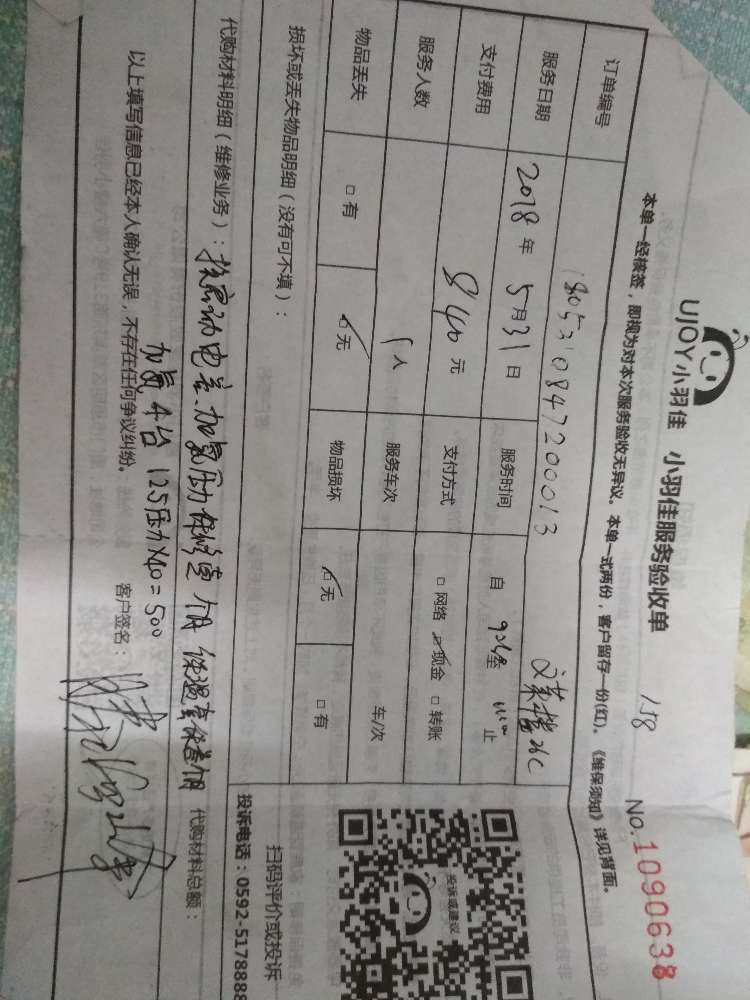 UJOY小羽佳 小羽佳服务验收单
158
No.1090638
本单一经核签，即视为对本次服务验收无异议。本单一式两份，客户留存一份(红)。《维保须知》详见背面。
订单编号 180531084720013
服务日期 2018年5月31日 服务时间 自 至 止
支付费用 840元 支付方式 □网络 ☑现金 □转账
服务人数 1人 服务车次 车/次
物品丢失 □有 ☑无 物品损坏 ☑无 □有
损坏或丢失物品明细（没有可不填）：
扫码评价或投诉
投诉或建议
投诉电话：0592-5178888
代购材料明细（维修业务）：换启动电容、加氟压力 保修壹个月 保温套保壹个月 代购材料总额：
加氟4台 125压力×40=500
以上填写信息已经本人确认无误，不存在任何争议纠纷。 客户签名：